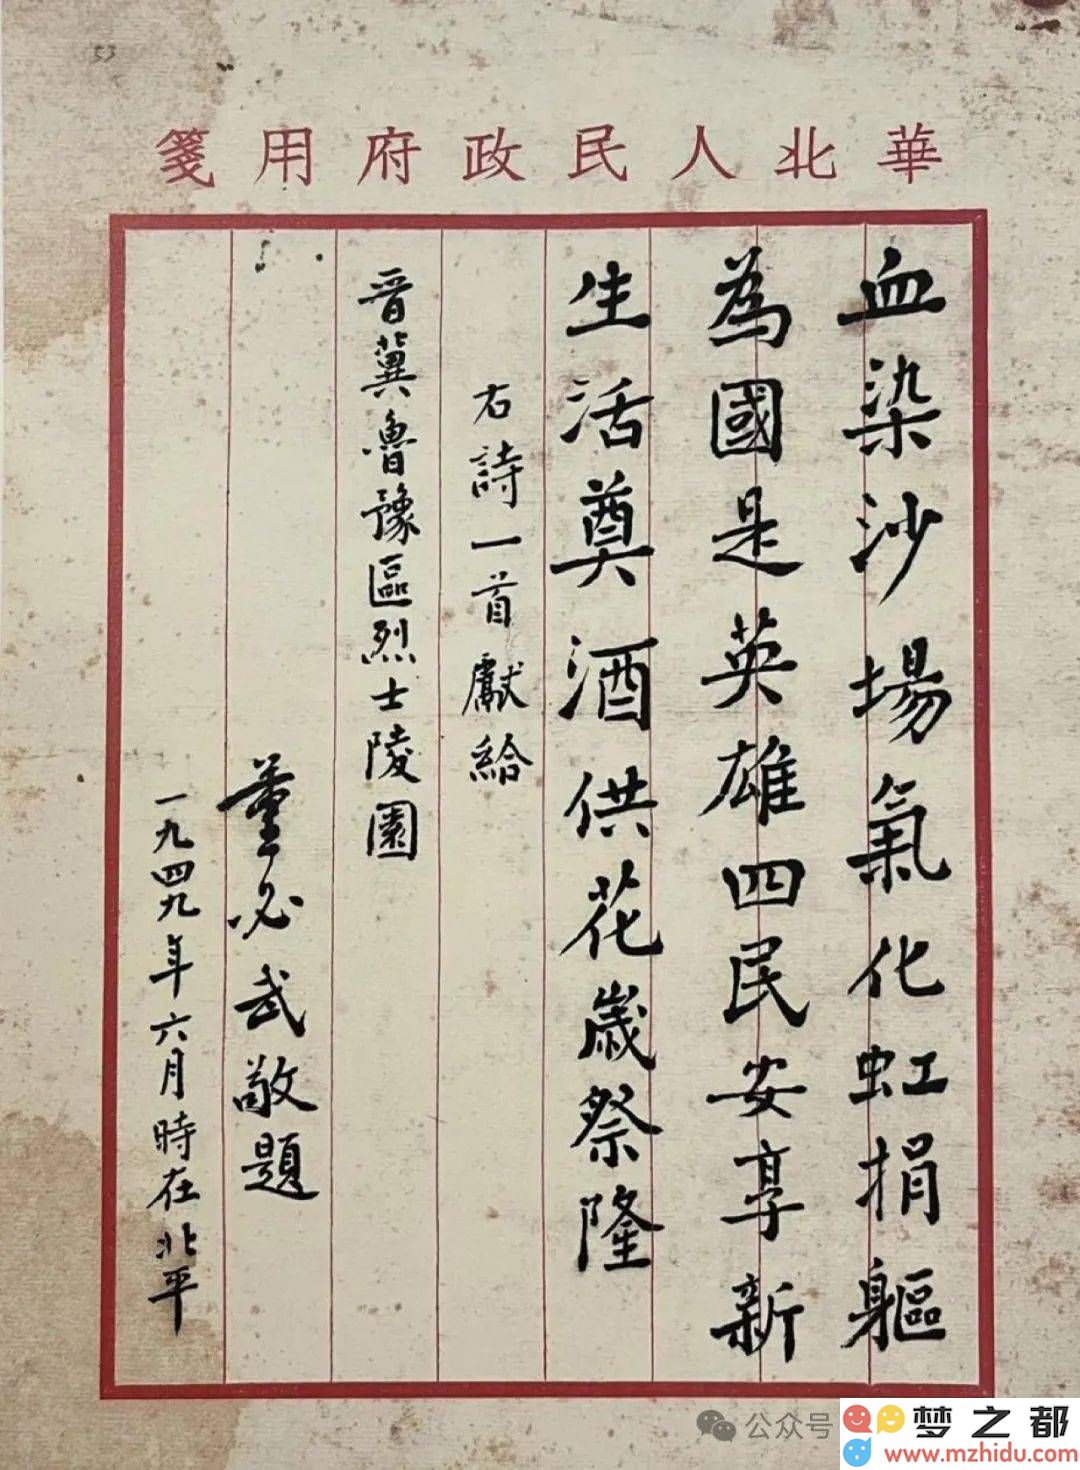 53
華北人民政府用箋
血染沙場氣化虹捐軀
為國是英雄四民安享新
生活奠酒供花歲祭隆
右詩一首獻給
晋冀魯豫區烈士陵園
董必武敬題
一九四九年六月時在北平
公众号
梦之都
www.mzhidu.com